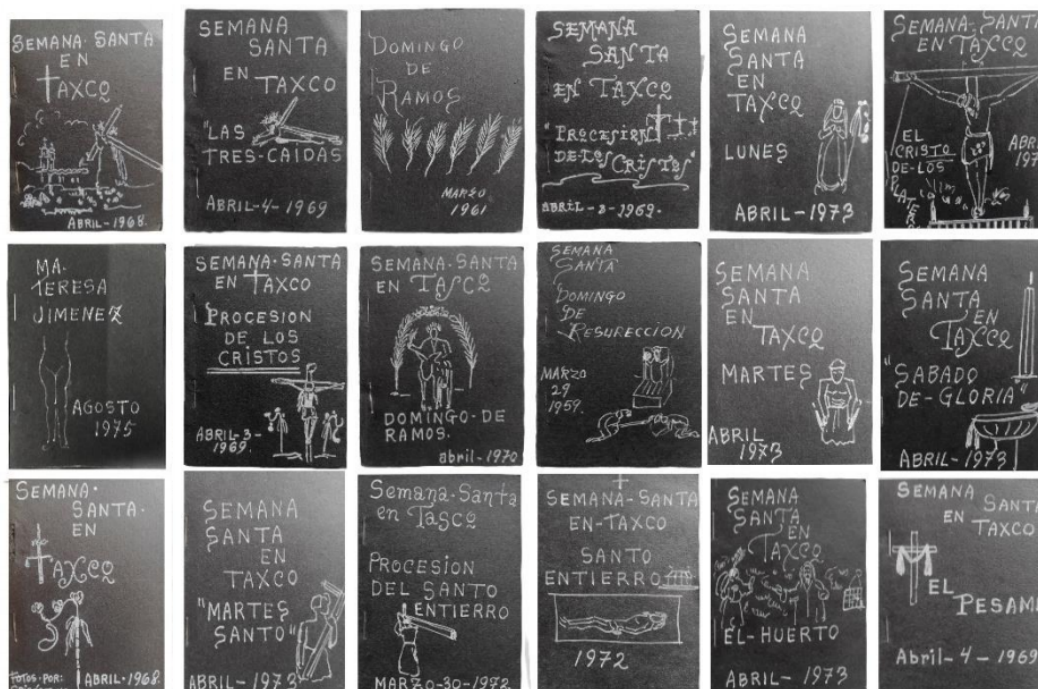 SEMANA-SANTA
EN
TAXCO
ABRIL-1968.
SEMANA
SANTA
EN TAXCO
"LAS
TRES-CAIDAS
ABRIL-4-1969
DOMINGO
DE
RAMOS
MARZO
1961
SEMANA
SANTA
EN TAXCO
"PROCESION
DE-LOS CRISTOS"
ABRIL-2-1969.
SEMANA
SANTA
EN
TAXCO
LUNES
ABRIL-1973
SEMANA-SANTA
EN TAXCO
EL
CRISTO
DE-LOS
MA-
TERESA
JIMENEZ
AGOSTO
1975
SEMANA-SANTA
EN TAXCO
PROCESION
DE LOS
CRISTOS
ABRIL-3-
1969.
SEMANA-SANTA
EN TASCO
DOMINGO-DE
RAMOS.
abril-1970
SEMANA
SANTA
"DOMINGO
DE
RESURECCION
MARZO
29
1959.
SEMANA
SANTA
EN
TAXCO
MARTES
ABRIL
1973
SEMANA
SANTA
EN
TAXCO
"SABADO
DE-GLORIA"
ABRIL-1973
SEMANA-
SANTA-
EN
TAXCO
FOTOS-POR:
ABRIL-1968
SEMANA
SANTA
EN
TAXCO
"MARTES
SANTO"
ABRIL-1973
Semana-Santa
en Tasco
PROCESION
DEL SANTO
ENTIERRO
MARZO-30-1972
SEMANA-SANTA
EN-TAXCO
SANTO
ENTIERRO
1972
SEMANA
SANTA
EN
TAXCO
EL-HUERTO
ABRIL-1973
SEMANA
SANTA
EN TAXCO
EL
PESAME
Abril-4-1969